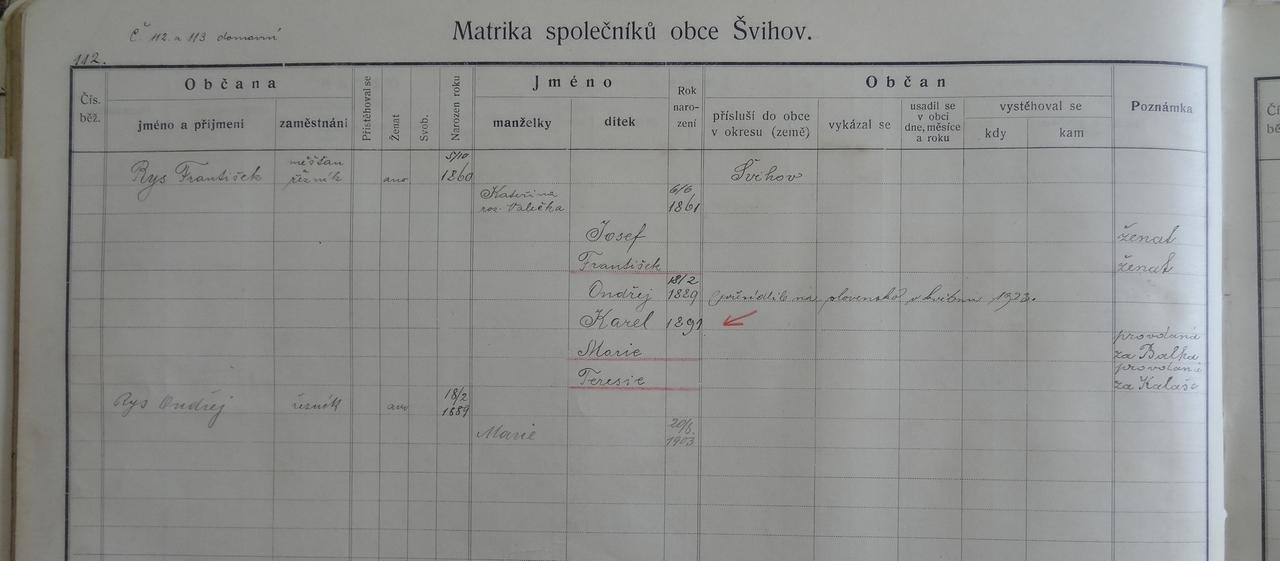 Č 112. a 113 domovní
Matrika společníků obce Švihov.
112.
Čís. běž.
Občana
jméno a přijmení
zaměstnání
Přistěhoval se
Ženat
Svob.
Narozen roku
Jméno
manželky
dítek
Rok naro-zení
Občan
přísluší do obce v okresu (země)
vykázal se
usadil se v obci dne, měsíce a roku
vystěhoval se
kdy
kam
Poznámka
Rys František
měšťan
řezník
ano
5/10
1860
Švihov
Kateřina
roz. Valečka
6/6
1861
Josef
ženat
František
ženat
Ondřej
18/2
1889
na slovensko v květnu 1923.
Karel
1891
Marie
provdaná
za
Teresie
provdaná
za Kalaše
Rys Ondřej
řezník
ano
18/2
1889
Marie
20/8.
1903